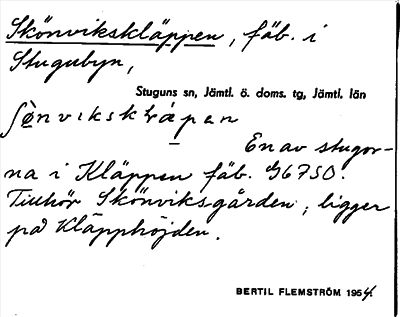 Skönvikskläppen, fäb. i
Stugubyn,
Stuguns sn, Jämtl. ö. doms. tg, Jämtl. län
En av stugor-
na i Kläppen fäb. 96750.
Tillhör Skönviksgården; ligger
på Kläpphöjden.
BERTIL FLEMSTRÖM 1954.